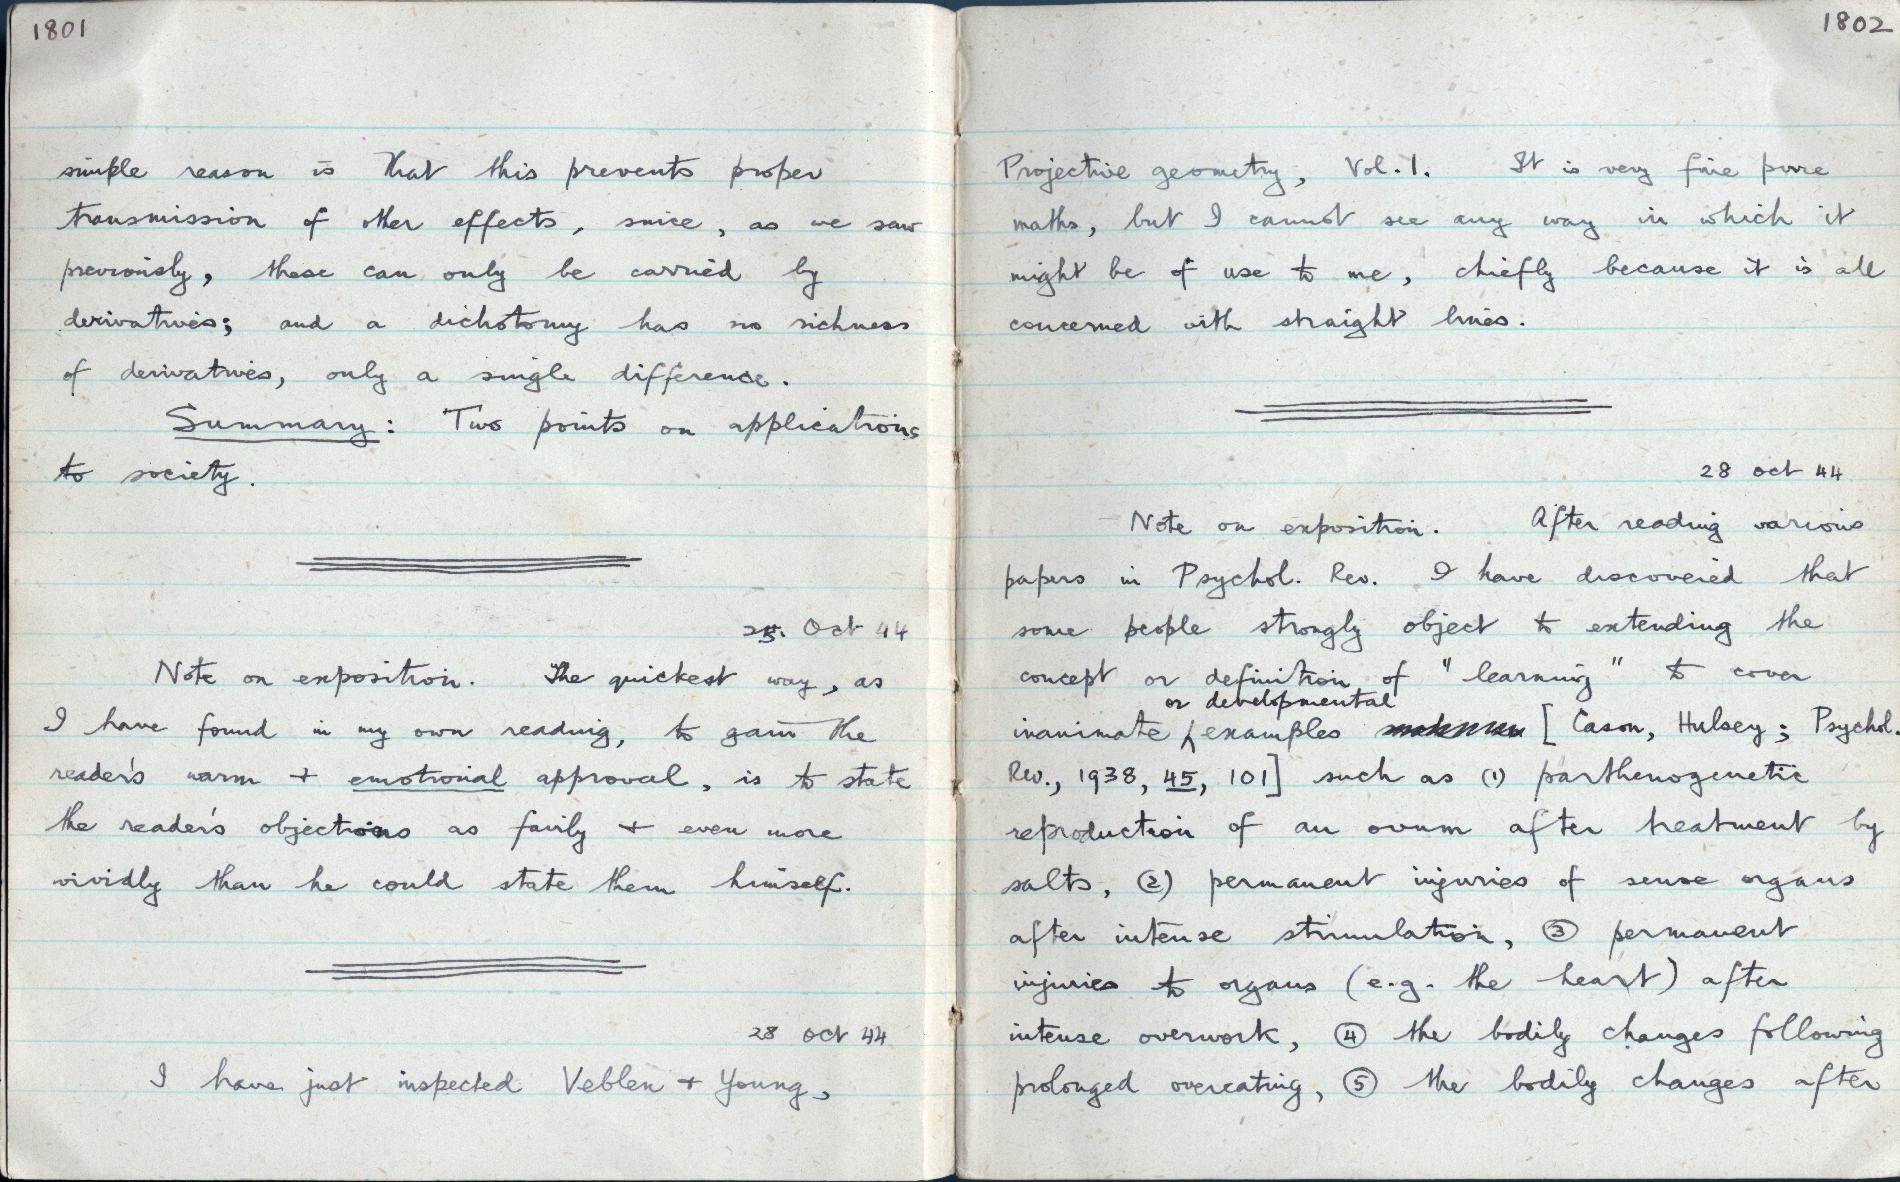 1801
simple reason is that this prevents proper
transmission of other effects, since, as we saw
previously, these can only be carried by
derivatives; and a dichotomy has no richness
of derivatives, only a single difference.
Summary: Two points on applications
to society.
Oct 44
Note on exposition. The quickest way, as
I have found in my own reading, to gain the
reader's warm + emotional approval, is to state
the reader's objections as fairly + even more
vividly than he could state them himself.
28 Oct 44
I have just inspected Veblen + Young,
1802
Projective geometry, Vol. 1. It is very fine pure
maths, but I cannot see any way in which it
might be of use to me, chiefly because it is all
concerned with straight lines.
28 Oct 44
Note on exposition. After reading various
papers in Psychol. Rev. I have discovered that
some people strongly object to extending the
concept or definition of "learning" to cover
or developmental
inanimate examples [Cason, Hulsey; Psychol.
Rev., 1938, 45, 101] such as (1) parthenogenetic
reproduction of an ovum after treatment by
salts, (2) permanent injuries of sense organs
after intense stimulation, ③ permanent
injuries to organs (e.g. the heart) after
intense overwork, ④ the bodily changes following
prolonged overeating, ⑤ the bodily changes after